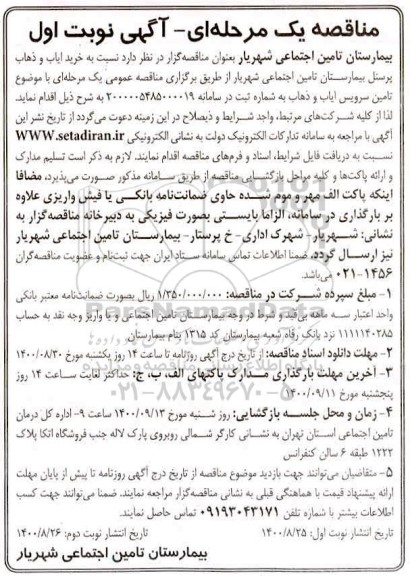 مناقصه یک مرحله‌ای- آگهی نوبت اول
بیمارستان تامین اجتماعی شهریار بعنوان مناقصه‌گزار در نظر دارد نسبت به خرید ایاب و ذهاب
پرسنل بیمارستان تامین اجتماعی شهریار از طریق برگزاری مناقصه عمومی یک مرحله‌ای با موضوع
تامین سرویس ایاب و ذهاب به شماره ثبت در سامانه ۲۰۰۰۰۰۵۴۸۵۰۰۰۰۱۹ به شرح ذیل اقدام نماید.
لذا از کلیه شرکت‌های مرتبط، واجد شرایط و ذیصلاح در این زمینه دعوت می‌گردد از تاریخ نشر این
آگهی با مراجعه به سامانه تدارکات الکترونیک دولت به نشانی الکترونیکی WWW.setadiran.ir
نسبت به دریافت فایل شرایط، اسناد و فرم‌های مناقصه اقدام نمایند. لازم به ذکر است تسلیم مدارک
و ارائه پاکت‌ها و کلیه مراحل بازگشایی مناقصه از طریق سامانه مذکور صورت می‌پذیرد، مضافا
اینکه پاکت الف مهر و موم شده حاوی ضمانت‌نامه بانکی یا فیش واریزی علاوه
بر بارگذاری در سامانه، الزاما بایستی بصورت فیزیکی به دبیرخانه مناقصه‌گزار به
نشانی: شهریار- شهرک اداری- خ پرستار- بیمارستان تامین اجتماعی شهریار
نیز ارسال گردد. ضمنا اطلاعات تماس سامانه ستاد ایران جهت ثبت‌نام و عضویت مناقصه‌گران
۱۴۵۶-۰۲۱ می‌باشد.
۱- مبلغ سپرده شرکت در مناقصه: ۱/۳۵۰/۰۰۰/۰۰۰ ریال بصورت ضمانت‌نامه معتبر بانکی
واحد اعتبار سه ماهه بی‌قید و شرط در وجه بیمارستان تامین اجتماعی و یا واریز وجه نقد به حساب
۱۱۱۱۱۴۰۲۸۵ نزد بانک رفاه شعبه بیمارستان کد ۱۳۱۵ بنام بیمارستان
۲- مهلت دانلود اسناد مناقصه: از تاریخ درج آگهی روزنامه تا ساعت ۱۴ روز یکشنبه مورخ ۱۴۰۰/۰۸/۳۰
۳- آخرین مهلت بارگذاری مدارک پاکتهای الف، ب، ج: حداکثر لغایت ساعت ۱۴ روز
پنجشنبه مورخ ۱۴۰۰/۰۹/۱۱
۴- زمان و محل جلسه بازگشایی: روز شنبه مورخ ۱۴۰۰/۰۹/۱۳ ساعت ۹- اداره کل درمان
تامین اجتماعی استان تهران به نشانی کارگر شمالی روبروی پارک لاله جنب فروشگاه اتکا پلاک
۱۲۲۲ طبقه ۶ سالن کنفرانس
۵- متقاضیان می‌توانند جهت بازدید موضوع مناقصه از تاریخ درج آگهی روزنامه تا پیش از پایان مهلت
ارائه پیشنهاد قیمت با هماهنگی قبلی به نشانی مناقصه‌گزار مراجعه نمایند. ضمنا می‌توانند جهت کسب
اطلاعات بیشتر با شماره تلفن ۰۹۱۹۳۰۴۳۱۷۱ تماس حاصل نمایند.
تاریخ انتشار نوبت اول: ۱۴۰۰/۸/۲۵ تاریخ انتشار نوبت دوم: ۱۴۰۰/۸/۲۶
بیمارستان تامین اجتماعی شهریار
۰۲۱-۸۸۳۴۹۶۷۰-۵